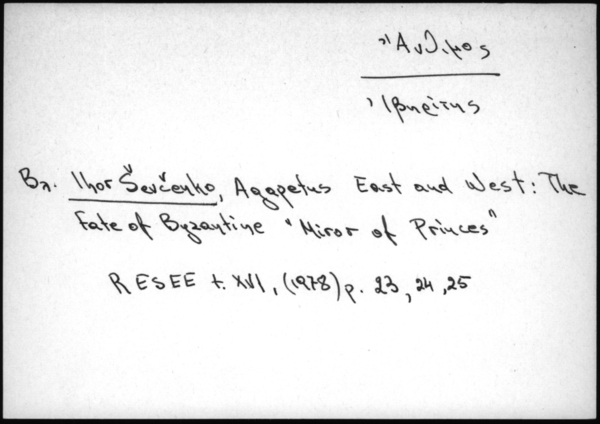 Ἄνθιμος
Ἰβηρίτης
Βλ. Ihor Ševčenko, Agapetus East and West: The
Fate of Byzantine "Miror of Princes"
RESEE t. XVI, (1978) p. 23, 24, 25